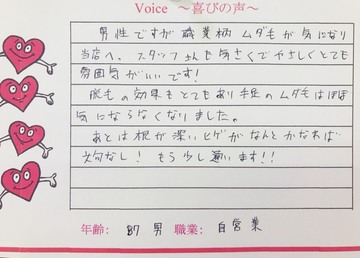 Voice ～喜びの声～
男性ですが職業柄ムダ毛が気になり
当店へ。スタッフさんも気さくでやさしくとても
雰囲気がいいです！
脱毛の効果もとてもあり手足のムダ毛はほぼ
気にならなくなりました。
あとは根が深いヒゲがなんとかなれば
文句なし！もう少し通います!!
年齢: 37 男 職業: 自営業